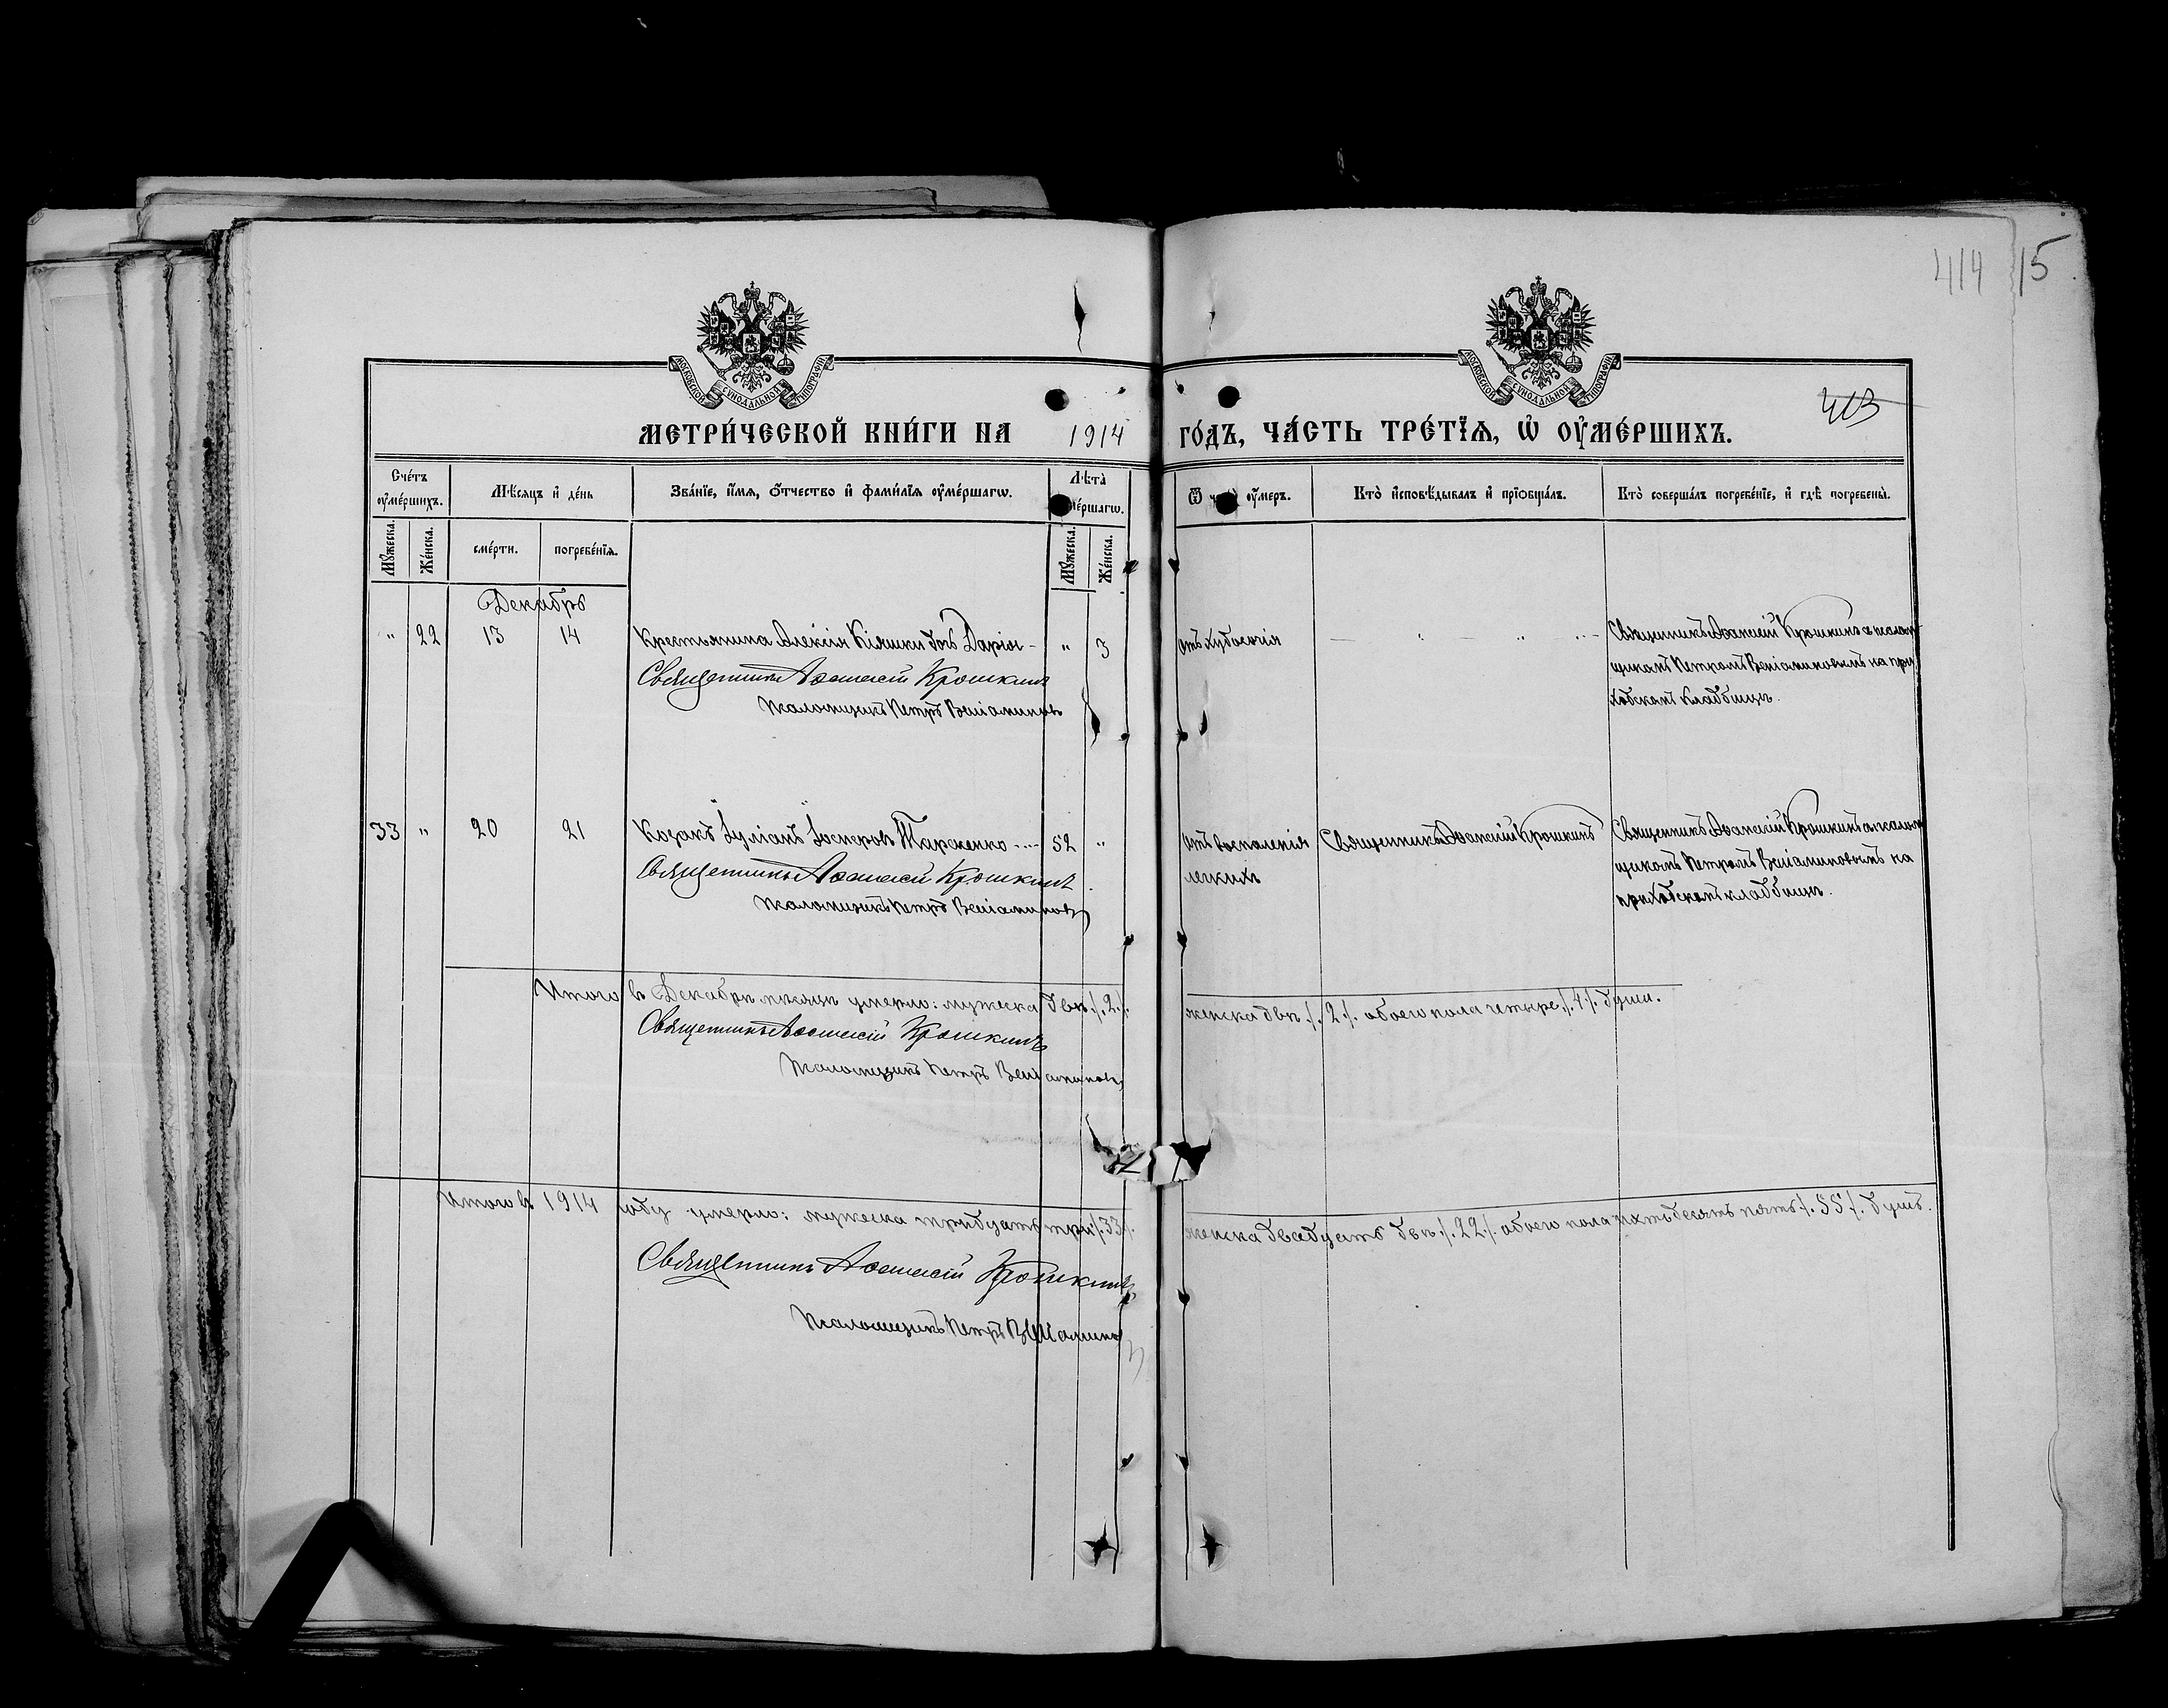 414 15
МОСКОВСКОЙ СѴНОДАЛЬНОЙ ТИПОГРАФІИ
МОСКОВСКОЙ СѴНОДАЛЬНОЙ ТИПОГРАФІИ
413
МЕТРИ́ЧЕСКОЙ КНИ́ГИ НА 1914 ГО́ДЪ, ЧА́СТЬ ТРЕ́ТЇѦ, Ѡ҆ ОУ҆МЕ́РШИХЪ.
Сче́тъ оу҆ме́ршихъ.
Мꙋ́жеска.
Же́нска.
Мѣ́сяцъ и҆ де́нь
сме́рти.
погребе́нїѧ.
Зва́нїе, и҆́мѧ, ѻ҆́тчество и҆ фами́лїѧ оу҆ме́ршагѡ.
Лѣ́та
ме́ршагѡ.
Мꙋ́жеска.
Же́нска.
Ѿ оу҆́меръ.
Кто̀ и҆сповѣ́дывалъ и҆ прїѡбща́лъ.
Кто̀ соверша́лъ погребе́нїе, и҆ гдѣ̀ погребены̀.
Декабрь
" 22 13 14 Крестьянина Алексія Кіяшки дочь Дарія - " 3
Священникъ Аѳанасій Крошкинъ
Псаломщикъ Петръ Веніаминовъ
Священникъ Аѳанасій Крошкинъ с псалом-
щикомъ Петромъ Веніаминовымъ на при-
ходскомъ кладбищѣ.
33 " 20 21 Козакъ Іуліанъ Тарасенко 52 "
Священникъ Аѳанасій Крошкинъ
Псаломщикъ Петръ Веніаминовъ
Отъ воспаленія
легкихъ
Священникъ Аѳанасій Крошкинъ
Священникъ Аѳанасій Крошкинъ с псалом-
щикомъ Петромъ Веніаминовымъ на
приходскомъ кладбищѣ.
Итого в Декабрѣ мѣсяцѣ умерло: мужеска двѣ /.2./. женска двѣ /.2./. обоего пола четыре /.4./. души.
Священникъ Аѳанасій Крошкинъ
Псаломщикъ Петръ Веніаминовъ
Итого в 1914 году умерло: мужеска тридцать три /.33./. женска двадцать двѣ /.22./. обоего пола пятьдесятъ пять /.55./. душъ.
Священникъ Аѳанасій Крошкинъ
Псаломщикъ Петръ Веніаминовъ